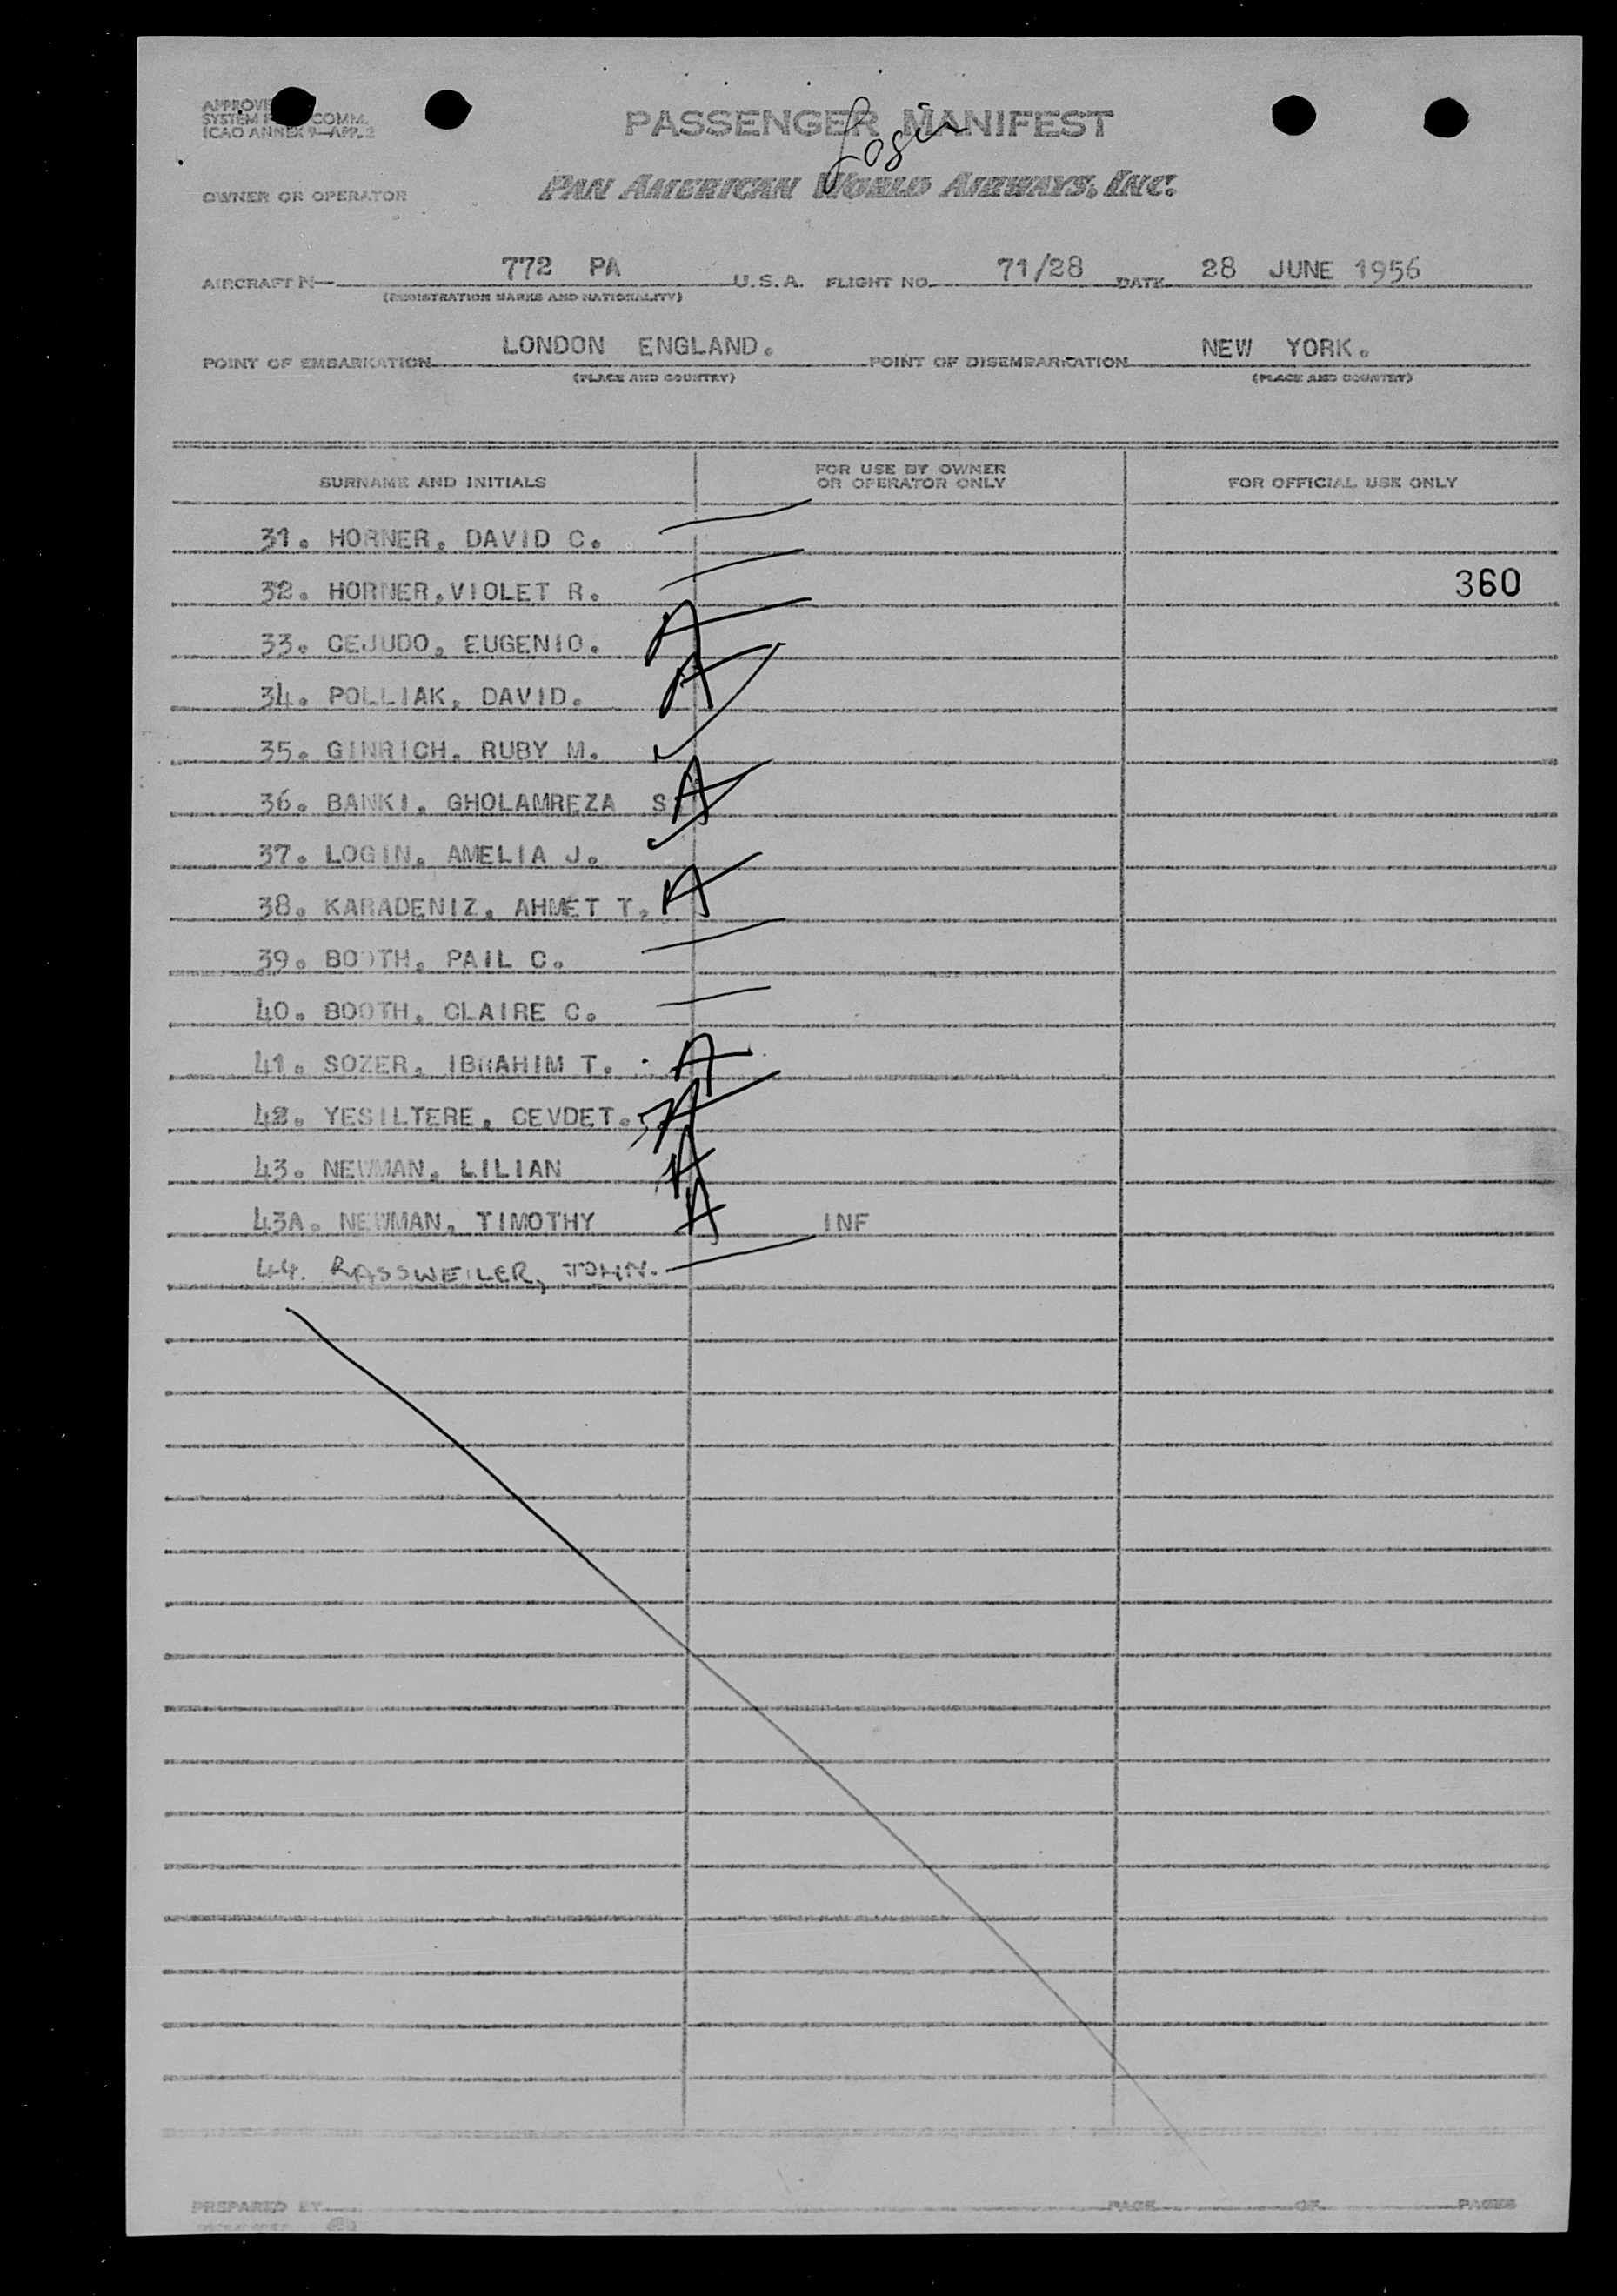 SYSTEM COMM.
ICAO ANNEX 9—APP. 2
PASSENGER MANIFEST
Login
OWNER OR OPERATOR PAN AMERICAN WORLD AIRWAYS, INC.
AIRCRAFT N— 772 PA U.S.A. FLIGHT NO. 71/28 DATE 28 JUNE 1956
(REGISTRATION MARKS AND NATIONALITY)
POINT OF EMBARKATION LONDON ENGLAND. POINT OF DISEMBARKATION NEW YORK.
(PLACE AND COUNTRY) (PLACE AND COUNTRY)
SURNAME AND INITIALS FOR USE BY OWNER OR OPERATOR ONLY FOR OFFICIAL USE ONLY
31. HORNER. DAVID C.
32. HORNER.VIOLET R. 360
33. CEJUDO. EUGENIO. A
34. POLLIAK. DAVID. A
35. GINRICH. RUBY M.
36. BANKI. GHOLAMREZA S. A
37. LOGIN. AMELIA J.
38. KARADENIZ. AHMET T. A
39. BOOTH. PAIL C.
40. BOOTH. CLAIRE C.
41. SOZER. IBRAHIM T. A
42. YESILTERE. CEVDET. A
43. NEWMAN. LILIAN A
43A. NEWMAN. TIMOTHY A INF
44. RASSWEILER, JOHN.
PREPARED BY PAGE OF PAGES